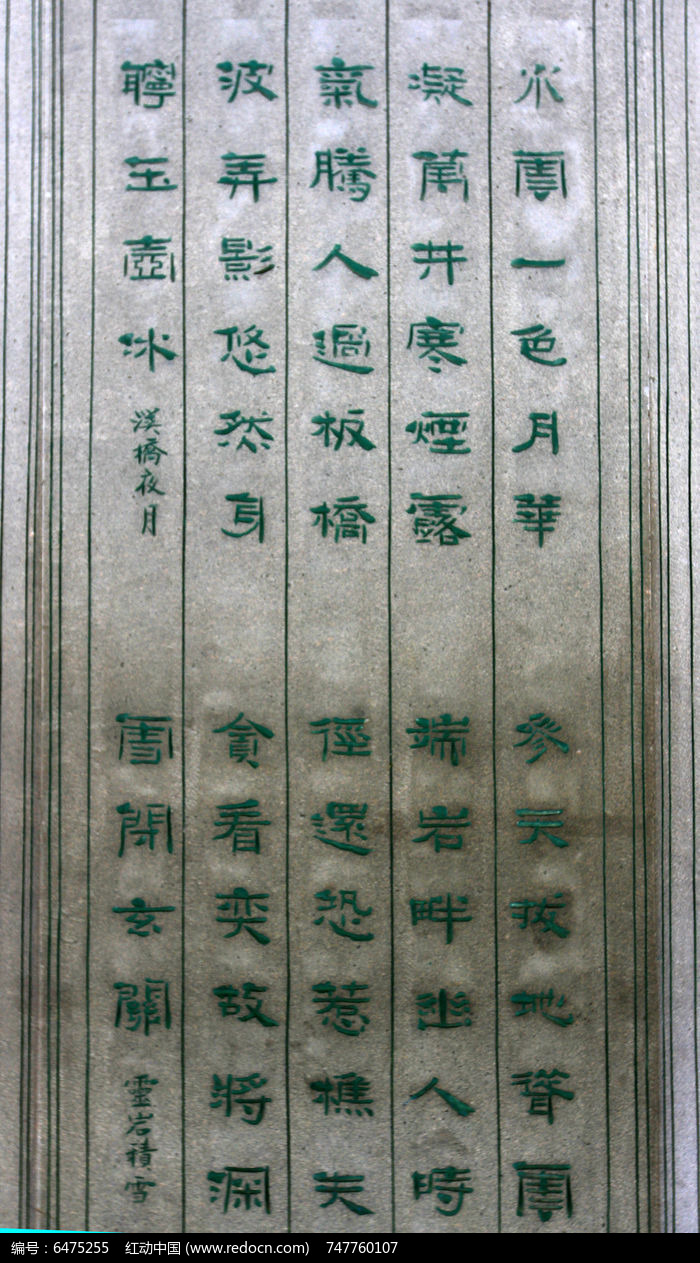 水雲一色月華
凝萬井寒煙露
氣騰人過板橋
波弄影悠然身
玉壺冰
橋夜月
參天拔地聳雲
端岩畔幽人時
徑還恐惹樵夫
貪看奕故將澗
雪閉玄關
靈岩積雪
编号：6475255 红动中国 (www.redocn.com) 747760107